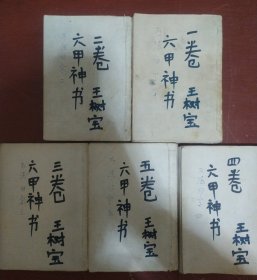 二卷
六甲神书
王树宝
一卷
六甲神书
王树宝
三卷
六甲神书
王树宝
五卷
六甲神书
王树宝
四卷
六甲神书
王树宝